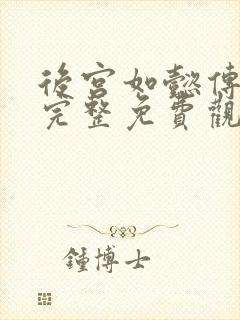 後宮如懿傳
完整免費觀
鍾博士